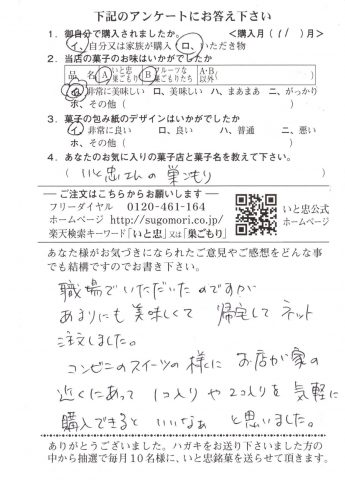 下記のアンケートにお答え下さい
1. 御自分で購入されましたか。 <購入月( 11 )月>
イ、自分又は家族が購入 ロ、いただき物
2. 当店の菓子のお味はいかがでしたか
品 名 A いと忠巣ごもり B フルーツな巣ごもりたち A・B以外
イ、非常に美味しい ロ、美味しい ハ、まあまあ ニ、がっかり
ホ、その他( )
3. 菓子の包み紙のデザインはいかがでしたか
イ、非常に良い ロ、良い ハ、普通 ニ、悪い
ホ、その他( )
4. あなたのお気に入りの菓子店と菓子名を教えて下さい。
( いと忠さんの巣ごもり )
ご注文はこちらからお願いします
フリーダイヤル 0120-461-164
ホームページ http://sugomori.co.jp/
楽天検索キーワード「いと忠」又は「巣ごもり」
いと忠公式
ホームページ
あなた様がお気づきになられたご意見やご感想をどんな事
でも結構ですのでお書き下さい。
職場でいただいたのですが
あまりにも美味しくて 帰宅して ネット
注文しました。
コンビニのスイーツの様に お店が家の
近くにあって 1コ入りや2コ入りを気軽に
購入できると いいなぁ と思いました。
ありがとうございました。ハガキをお送り下さいました方の
中から抽選で毎月10名様に、いと忠銘菓を送らせて頂きます。